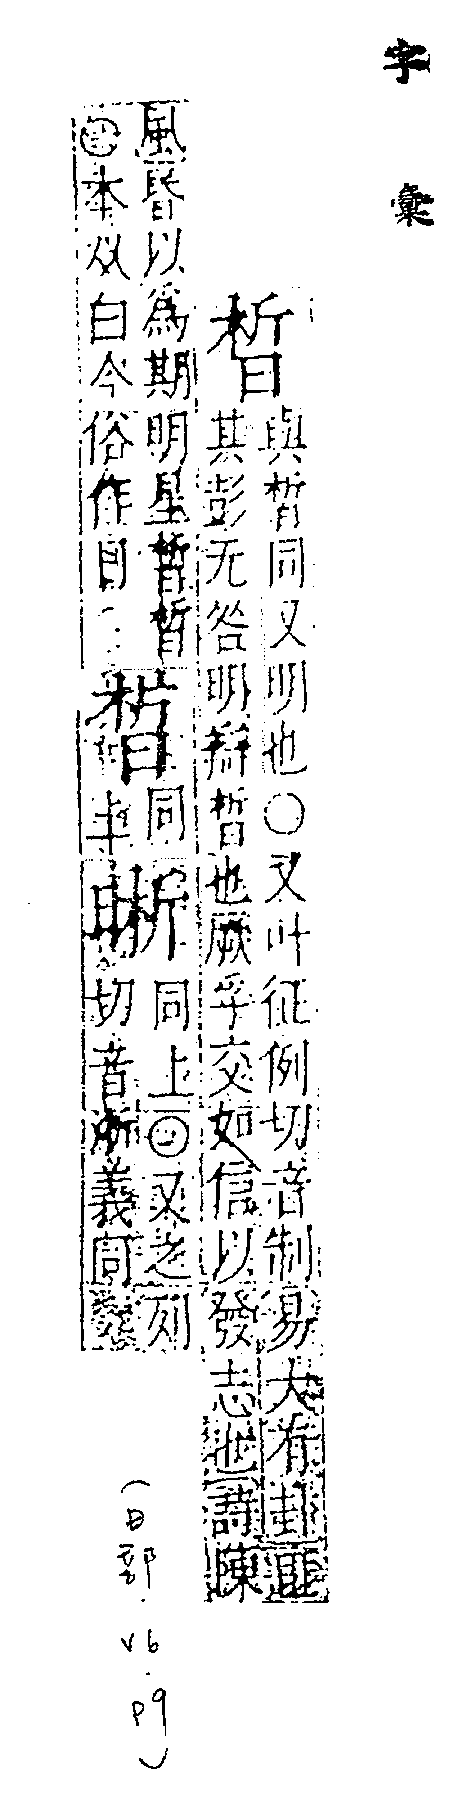 字彙
晳
與晳同又明也○又叶征例切音制易大有卦匪
其彭无咎明辯晳也厥孚交如信以發志也詩陳
風昏以為期明星晢晢
本从白今俗作日
晳同
昕同上 又之列
切音浙義同
(日部.V6.P9)